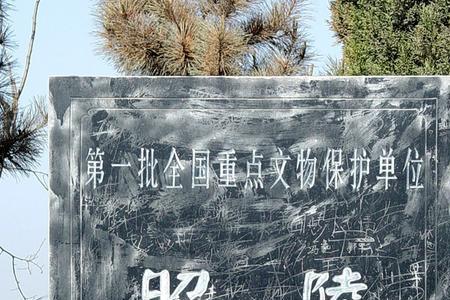 第一批全国重点文物保护单位
昭陵